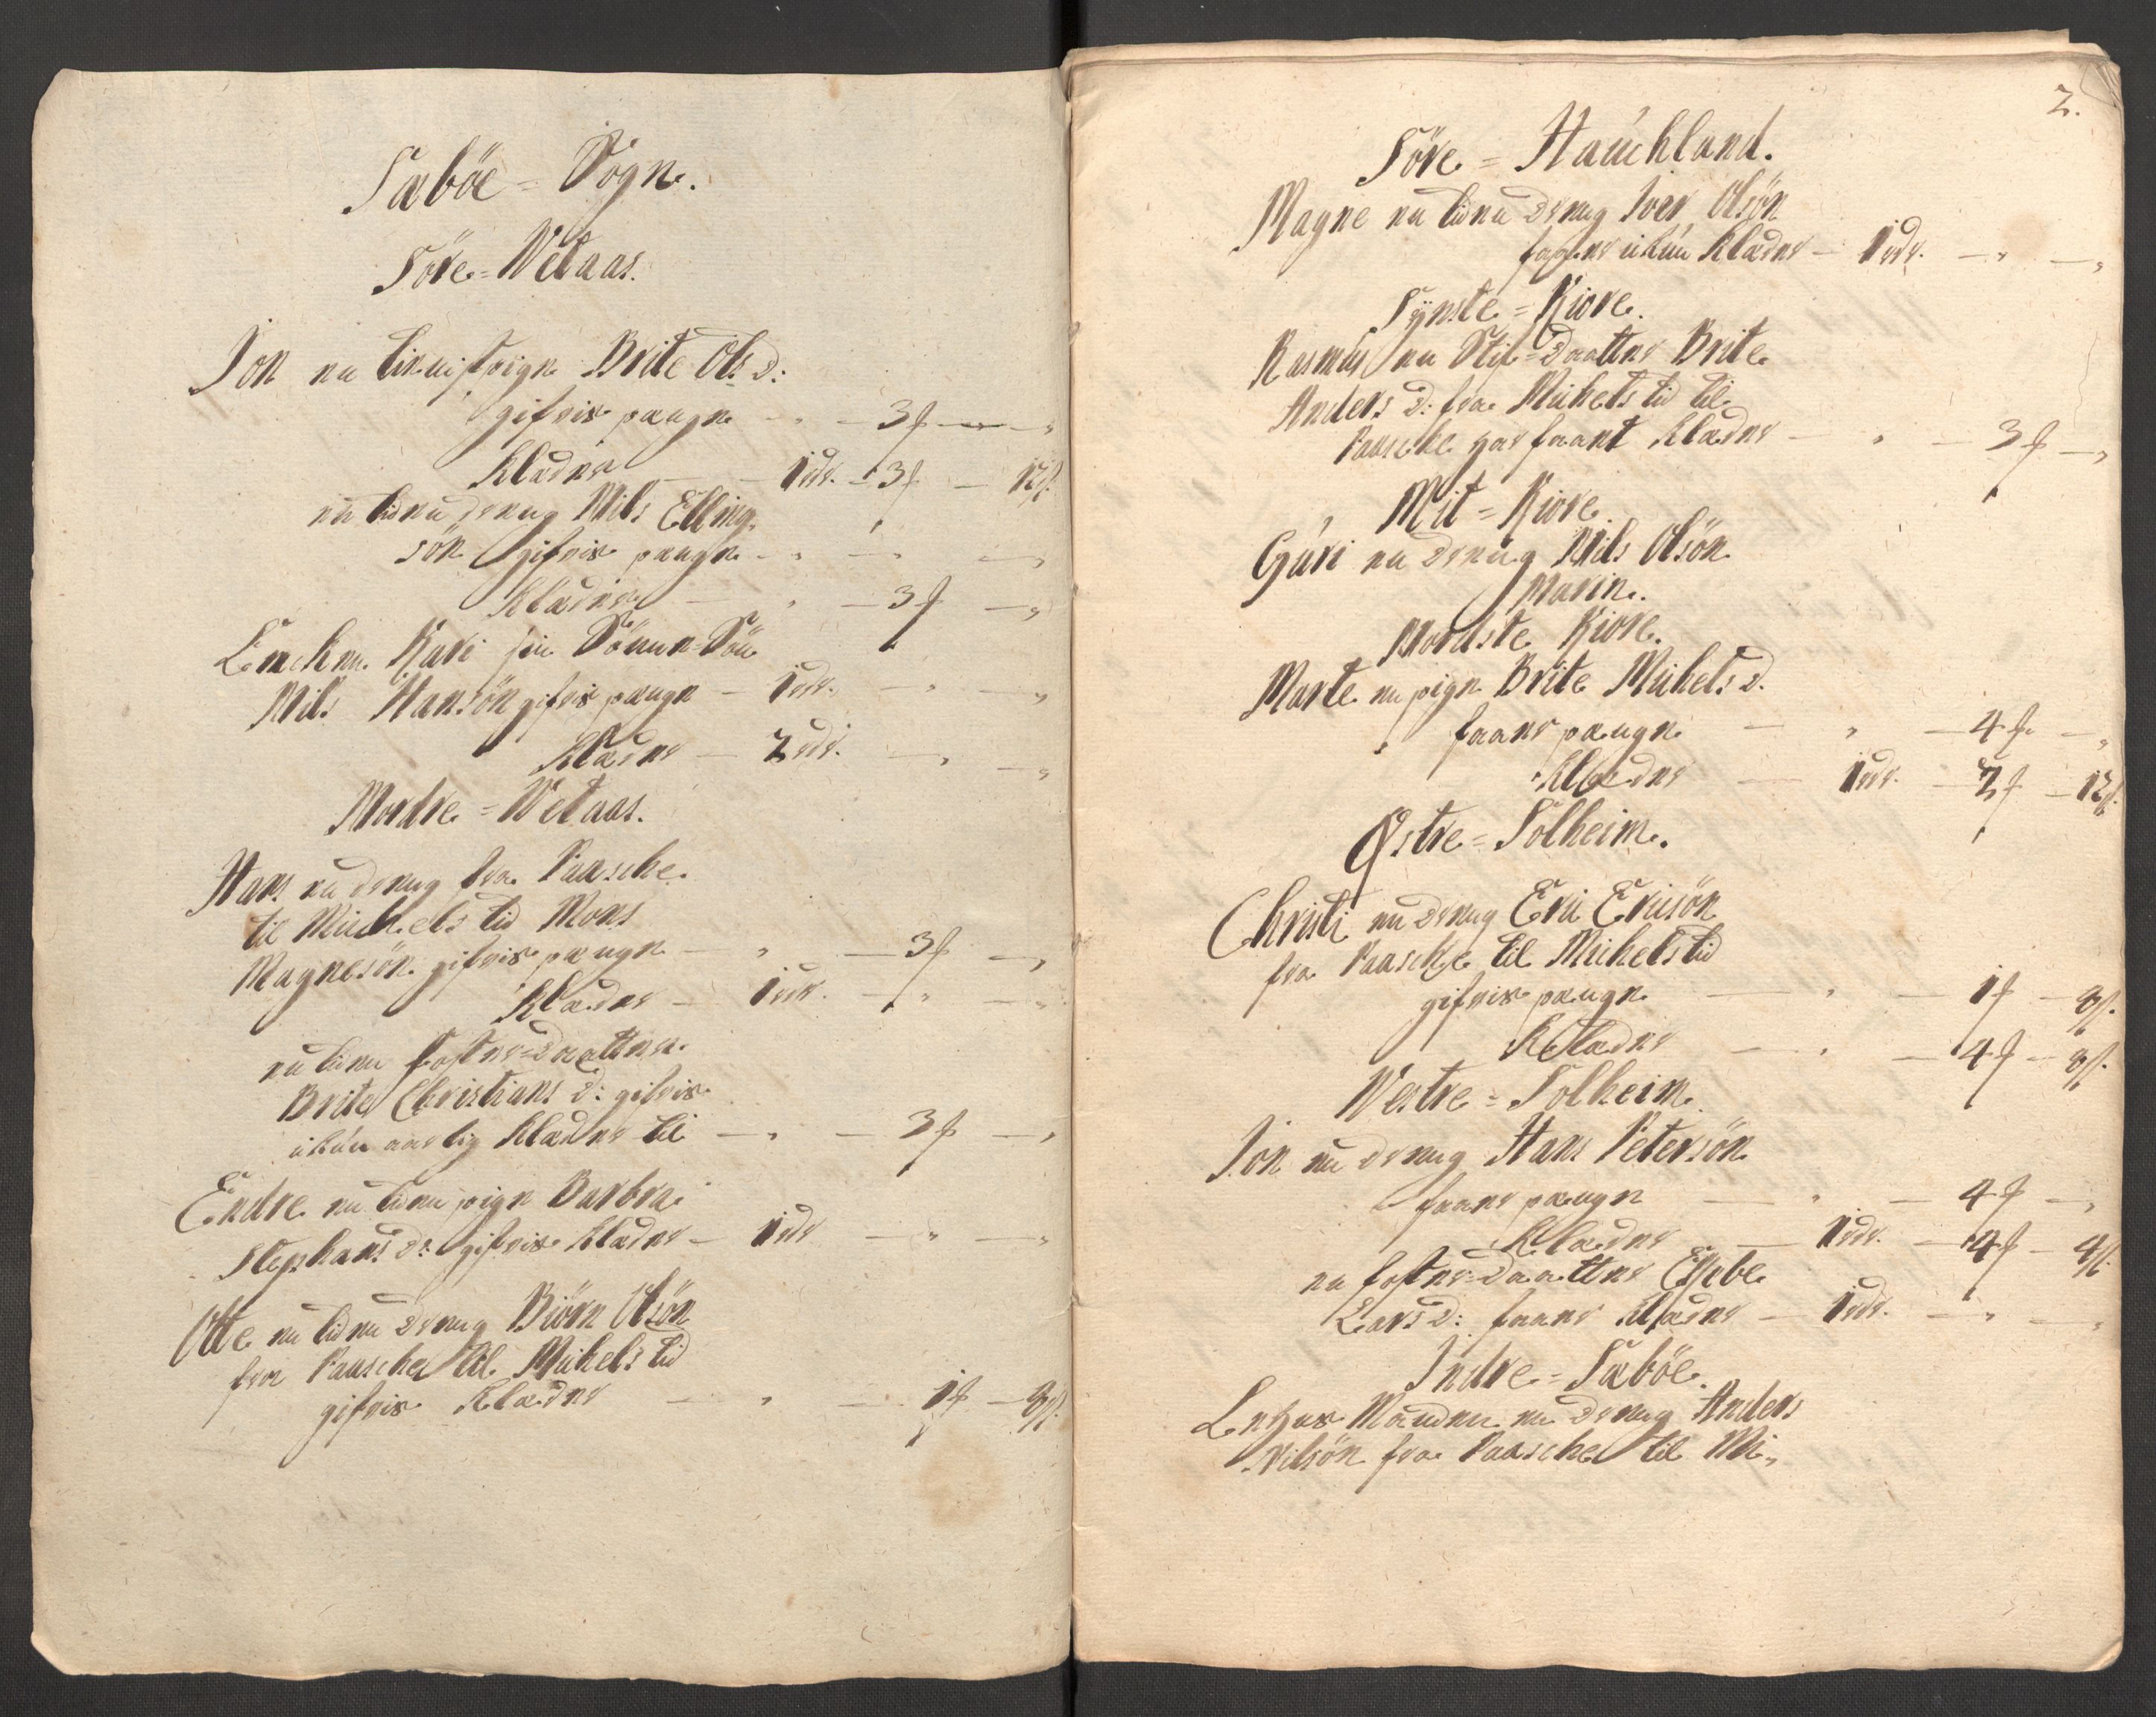 Sæböe = Sogn.
Söre = Wetaas.
Jon en tienist pige Brite Ols d:
gifvis penge - " - 3 f - "
Klæder - 1 rdr. - 3 f - 12 ß.
en liden dreng Nils Elling,
sön gifvis penge - " - " - "
Klæder - " - 3 f - "
Enchen Kari sin Sönne-Sön
Nils Hansön gifvis penge - 1 rdr. - " - "
Klæder - 2 rdr. - " - "
Nordre = Wetaas.
Hans en dreng fra Paasche
til Michels tid Mons
Magnesön gifvis penge - " - 3 f - "
Klæder - 1 rdr. - " - "
en liden foster = daatter
Brite Christians d: gifvis
ikun aarlig Klæder til - " - 3 f - "
Endre en liden pige Barbra
Stephans d: gifvis Klæder - 1 rdr - " - "
Otte en liden dreng Biörn Olsön
fra Paasche til Michels tid
gifvis Klæder - " - 1 f - 8 ß.
2.
Söre = Hauchland.
Magne en liden dreng Iver Olsön
ikun Klæder - 1 rdr. - " - "
Synste = Kiore.
Rasmus en Stif = Daatter Brite
Anders d: fra Michels tid til
Paasche har faaet Klæder - " - 3 f - "
Mit = Kiore
Guri en dreng Nils Olsön
Nordste Kiore.
Marte en pige Brite Michels d.
faaer penge - " - 4 f - "
Klæder - 1 rdr. - 2 f - 12 ß.
Østre = Solheim.
Christi en dreng Eric Ericsön
fra Paasche til Michels tid
gifvis penge - " - 1 f - 8 ß.
Klæder - " - 4 f - 8 ß.
Westre = Solheim.
Jon en dreng Hans Petersön
faaer penge - " - 4 f - "
Klæder - 1 rdr. - 4 f - 4 ß.
en foster = daatter
Lars d: faaer Klæder - 1 rdr. - " - "
Indre = Sæböe.
Manden en dreng Anders
Nilsön fra Paasche til Mi,,